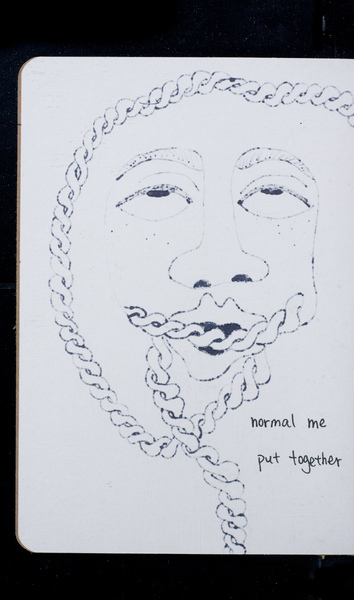 normal me
put together